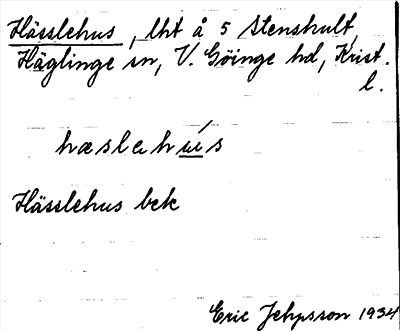 Hässlehus, lht å 5 Stenshult,
Häglinge sn, V. Göinge hd, Krist.
l.
hæslehús
Hässlehus bek
Eric Jehpsson 1934